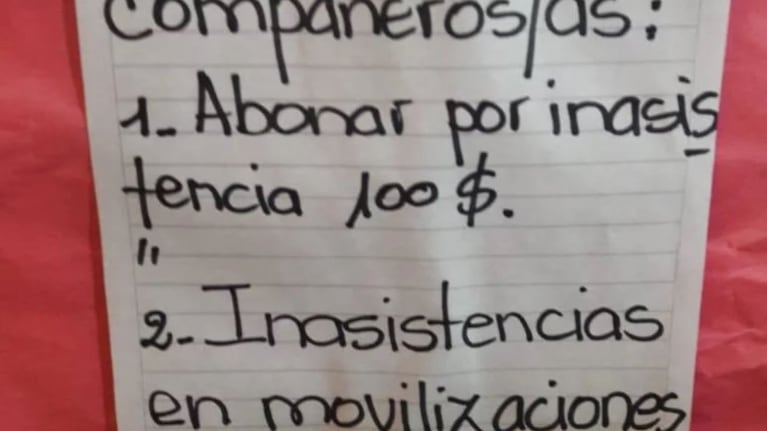 Compañeros/as:
1- Abonar por inasis
tencia 100 $.
"
2- Inasistencias
en movilizaciones